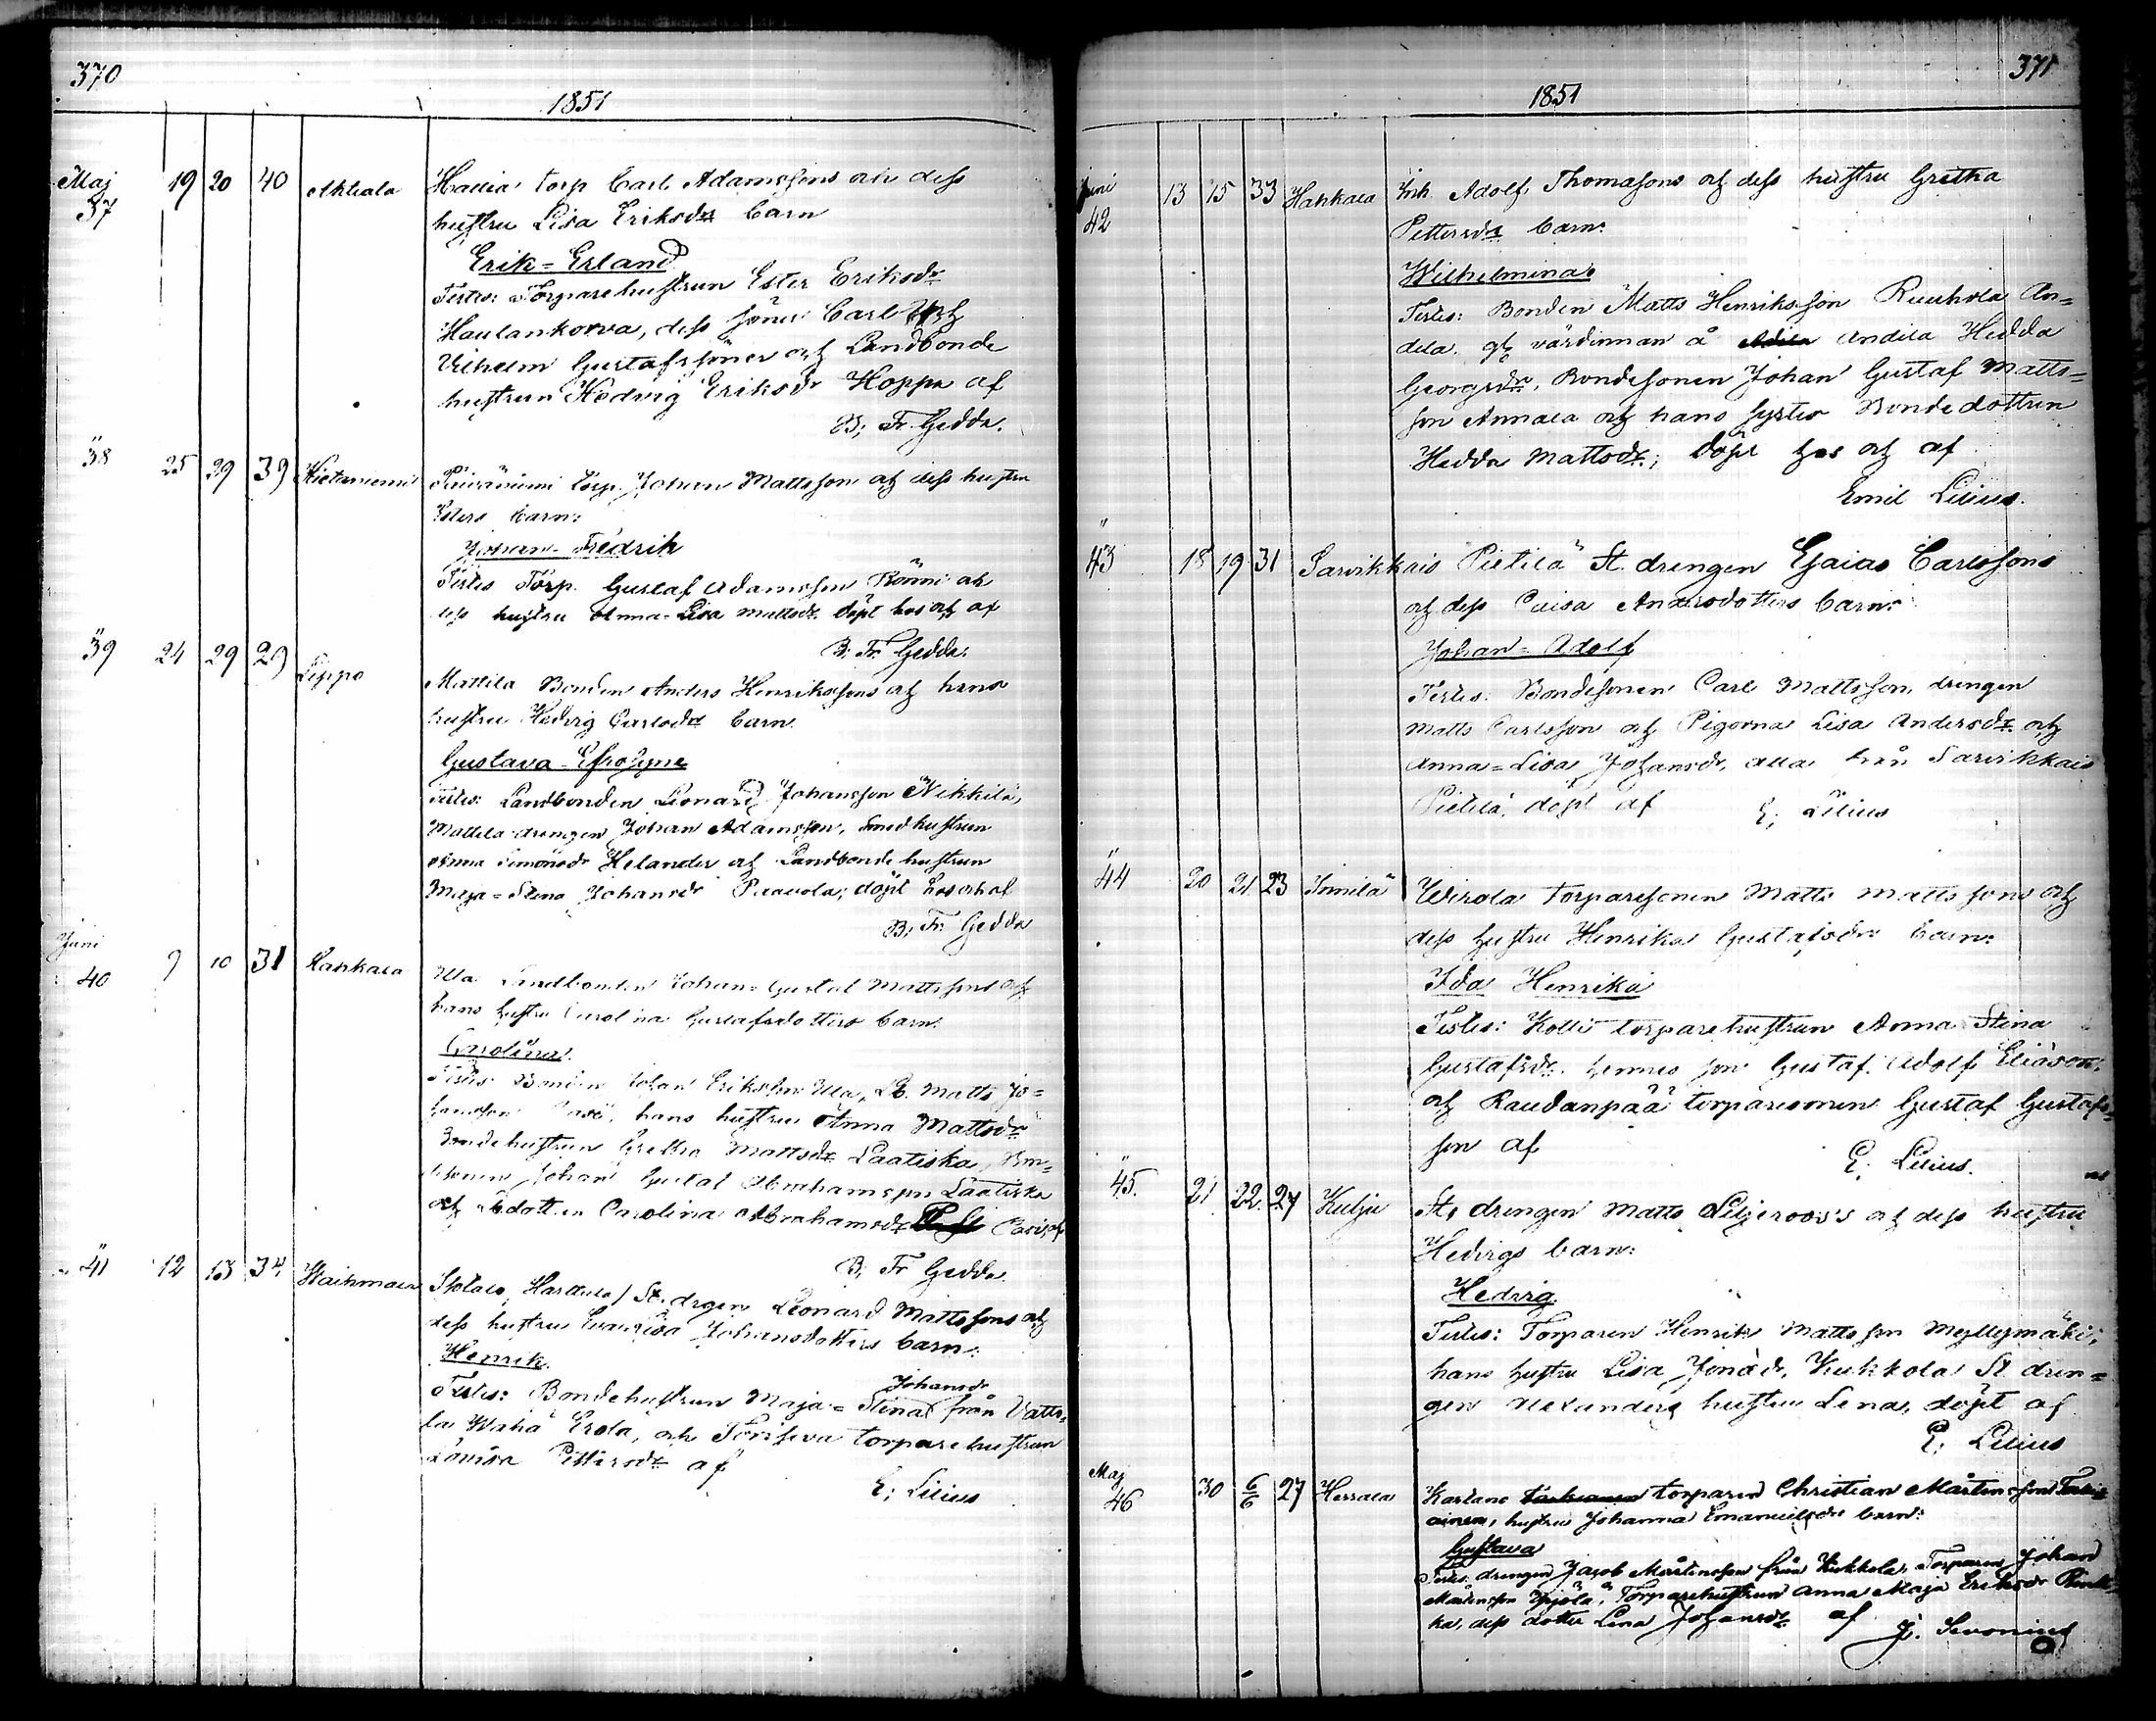 370
1851
Maj 37 19 20 40 Ahtiala Hallia torp Carl Adamssons och dess
hustru Lisa Eriksdr barn
Erik-Erland
Testes: Torparehustrun Ester Eriksdr
Haulankorva, dess söner Carl och
Vilhelm Gustafssöner och Landbonde
hustrun Hedvig Eriksdr Hoppa af
B; Fr. Gedda.
" 38 25 29 39 Hietaniemi Päiväniemi torp. Johan Mattsson och dess hustru
Esters barn:
Johan-Fredrik
Testes Torp. Gustaf Adamsson Rönni och
dess hustru Anna-Lisa Mattsdr döpt hos och af
B: Fr. Gedda.
" 39 24 29 29 Lippo
Mattila Bonden Anders Henrikssons och hans
hustru Hedvig Carlsdr barn
Gustava-Efrosyne
Testes: Landbonden Leonard Johansson Nikkilä,
Mattila drengen Johan Adamsson, Smedhustrun
Anna Simonsdr Helander och Landbonde hustrun
Maja-Stina Johansdr Paavola; döpt hos och af
B; Fr. Gedda
Juni 40 9 10 31 Lahkala Ula Landbonden Johan-Gustaf Mattssons och
hans hustru Carolina Gustafsdotters barn.
Carolina.
Testes Bonden Johan Eriksson Ula, Lb. Matts Jo=
hansson, hans hustru Anna Mattsdr
Bondehustrun Gretha Mattsdr Laatiska, Bon=
desonen Johan Gustaf Abrahamsson Laatiska
och dottren Carolina Abrahamsdr
B; Fr Gedda.
" 41 12 13 34 Waihmala
Harttula St. drgen Leonard Mattssons och
dess hustru Eva Lisa Johansdotters barn:
Henrik.
Testes: Bondehustrun Maja=Stina Johansdr från Vatto=
la Wähä Erola, och torparehustrun
Lovisa Pettersdr af
E; Lilius
371
1851
Juni 42 13 15 33 Hahkala Inh. Adolf Thomasons och dess hustru Gretha
Pettersdr barn:
Wilhelmina
Testes: Bonden Matts Henriksson Ruuhola An=
dila. och värdinnan å Andila Hedda
Georgsdr, Bondesonen Johan Gustaf Matts=
son Annala och hans syster Bondedottren
Hedda Mattsdr; döpt hos och af
Emil Lilius.
" 43 18 19 31 Sarvikkais Pietilä St. drengen Esaias Carlssons
och dess Caisa Andersdotters barn:
Johan-Adolf
Testes: Bondesonen Carl Mattsson, drengen
Matts Carlsson och Pigorna Lisa Andersdr och
Anna=Lisa Johansdr, alla från Sarvikkais
Pietilä, döpt af E; Lilius
" 44 20 21 23 Innilä Wirola torparesonen Matts Mattssons och
dess hustru Henrika Gustafsdrs barn:
Ida Henrika
Testes: Kolli torparehustrun Anna Stina
Gustafsdr. hennes son Gustaf Adolf Eliasson,
och Raudanpää torparesonen Gustaf Gustafs=
son af E; Lilius.
" 45. 21 22 27 Kulju St. drengen Matts Liljeroos's och dess hustru
Hedvigs barn:
Hedvig.
Testes: Torparen Henrik Mattsson Myllymäki,
hans hustru Lisa Jonasdr, Kukkola St dren=
gen Alexanders hustru Lena, döpt af
E; Lilius
Maj 46 30 6/6 27 Herrala torparen Christian Mårtensson
ainen, hustru Johanna Emanuelsdrs barn:
Gustava
Testes: drengen Jacob Mårtensson från Kukkola, Torparen Johan
Mårtensson, Torparehustrun Anna Maja Eriksdr
ka, dess dotter Lena Johansdr af J. Sevonius